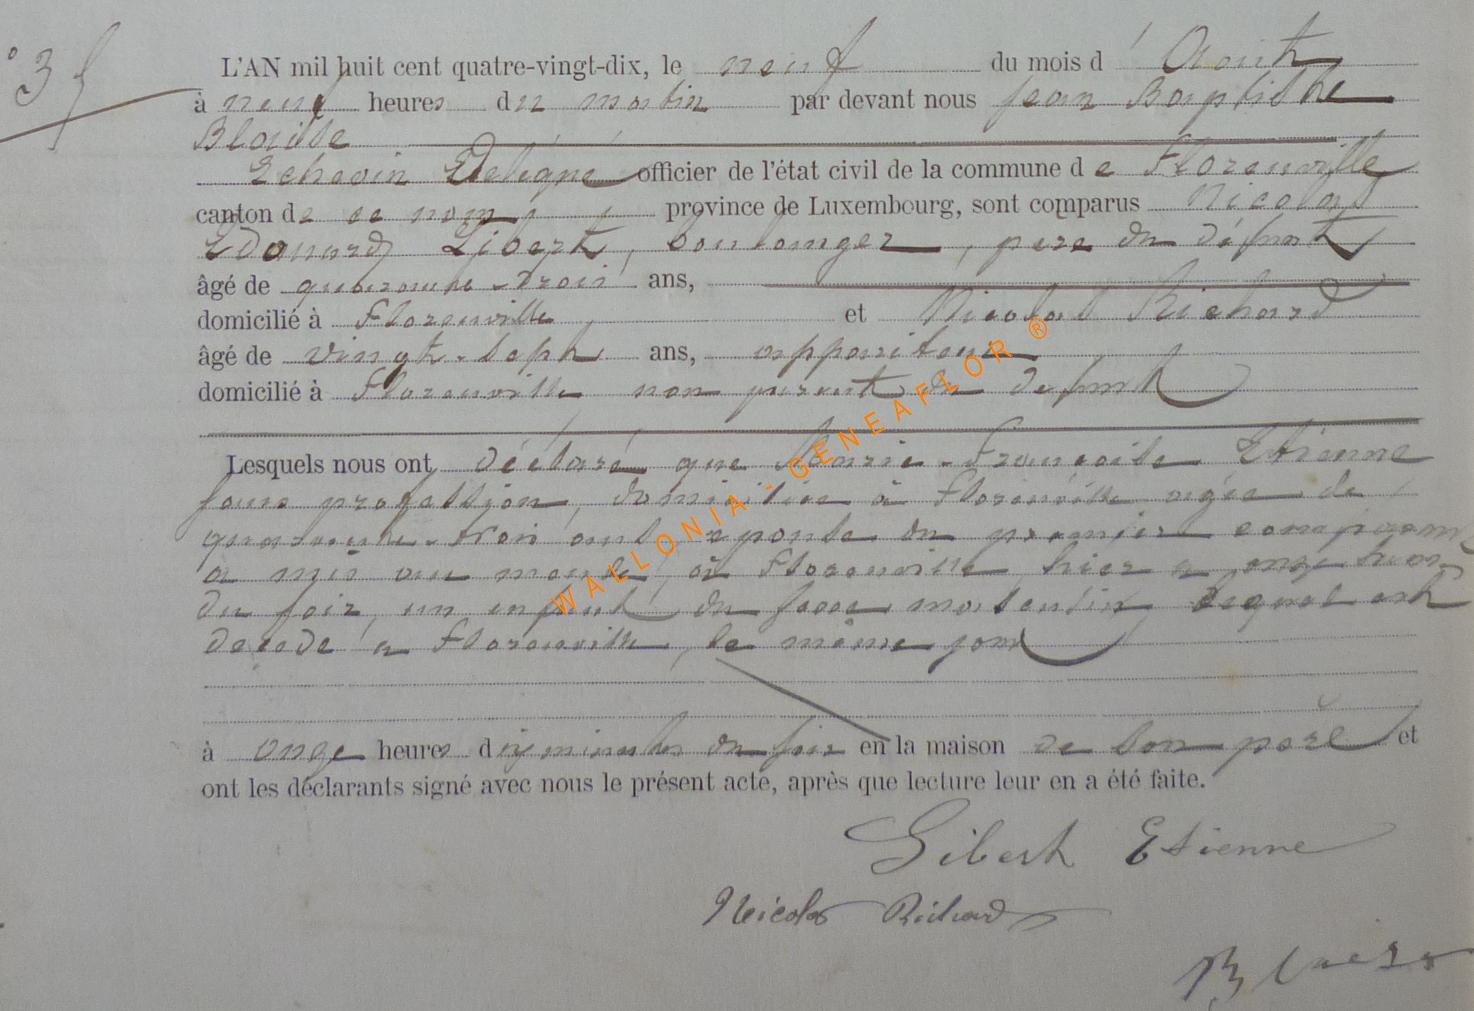 °35
L'AN mil huit cent quatre-vingt-dix, le neuf du mois d'Août
à neuf heures du matin par devant nous Jean Baptiste
Blaisse
Echevin Délégué officier de l'état civil de la commune de Florenville
canton de ce nom, province de Luxembourg, sont comparus Nicolas
Edouard Libert, boulanger, père du défunt
âgé de quarante-trois ans,
domicilié à Florenville et Nicolas Richard
âgé de vingt-sept ans, appariteur
domicilié à Florenville non parent du defunt
Lesquels nous ont déclaré que Marie-Françoise Etienne
sans profession, domiciliée à Florenville agée de
quarante-trois ans épouse du premier comparant
a mis au monde, à Florenville hier a onze heures
du soir, un enfant du sexe masculin lequel est
decedé a Florenville, le même jour
à onze heures dix minutes du soir en la maison de son père et
ont les déclarants signé avec nous le présent acte, après que lecture leur en a été faite.
Libert Etienne
Nicolas Richard
WALLONIA - GENEAFLOR ®